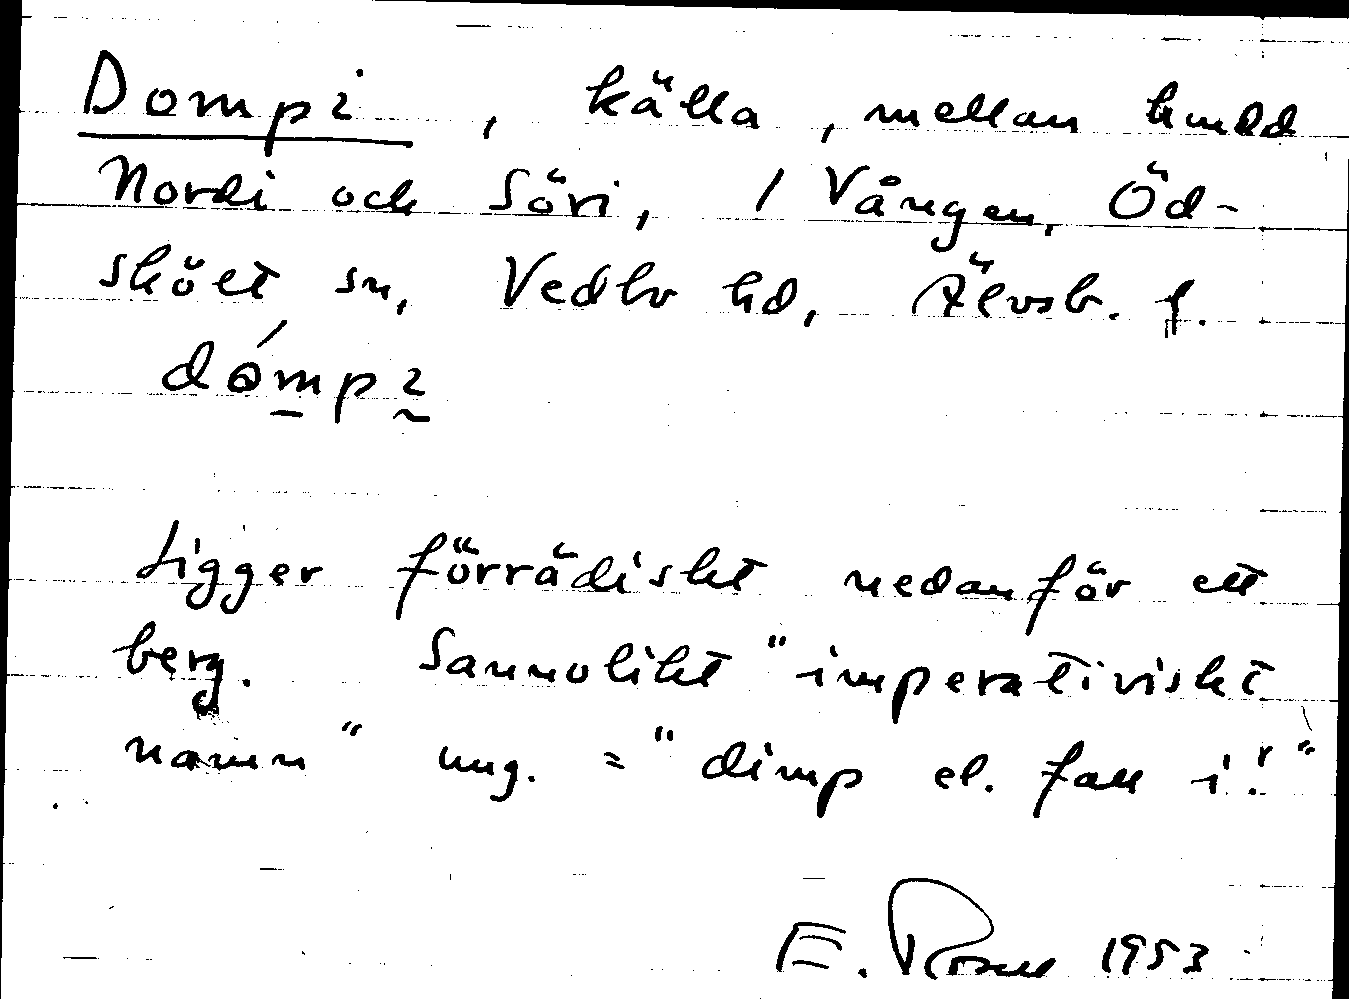 Dompi, källa, mellan hmdd
Nordi och Söri, i Vången, Öd-
sköet sn, Vedbo hd, Älvsb. l.
dómpi
Ligger förrädiskt nedanför ett
berg. Sannolikt "imperativiskt
namn" ung. = "dimp el. fall i!"
E. Rosell 1953